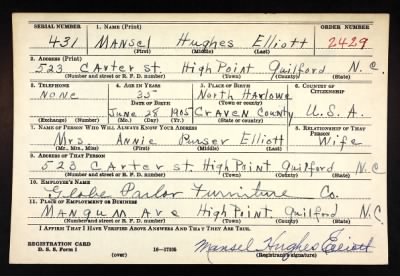 SERIAL NUMBER 1. NAME (Print) ORDER NUMBER
431 Mansel Hughes Elliott 2429
(First) (Middle) (Last)
2. ADDRESS (Print)
523 Carter st. High Point Guilford N.C.
(Number and street or R. F. D. number) (Town) (County) (State)
3. TELEPHONE 4. AGE IN YEARS 5. PLACE OF BIRTH 6. COUNTRY OF CITIZENSHIP
None 35 North Harlowe
DATE OF BIRTH (Town or county)
June 28 1905 Craven County U.S.A.
(Exchange) (Number) (Mo.) (Day) (Yr.) (State or country)
7. NAME OF PERSON WHO WILL ALWAYS KNOW YOUR ADDRESS 8. RELATIONSHIP OF THAT PERSON
Mrs. Annie Purser Elliott Wife
(Mr., Mrs., Miss) (First) (Middle) (Last)
9. ADDRESS OF THAT PERSON
523 Carter st. High Point Guilford N.C.
(Number and street or R. F. D. number) (Town) (County) (State)
10. EMPLOYER'S NAME
Globe Parlor Furniture Co.
11. PLACE OF EMPLOYMENT OR BUSINESS
Mangum Ave High Point. Guilford N.C.
(Number and street or R. F. D. number) (Town) (County) (State)
I AFFIRM THAT I HAVE VERIFIED ABOVE ANSWERS AND THAT THEY ARE TRUE.
REGISTRATION CARD
D. S. S. Form 1 16—17105 Mansel Hughes Elliott
(over) (Registrant's signature)